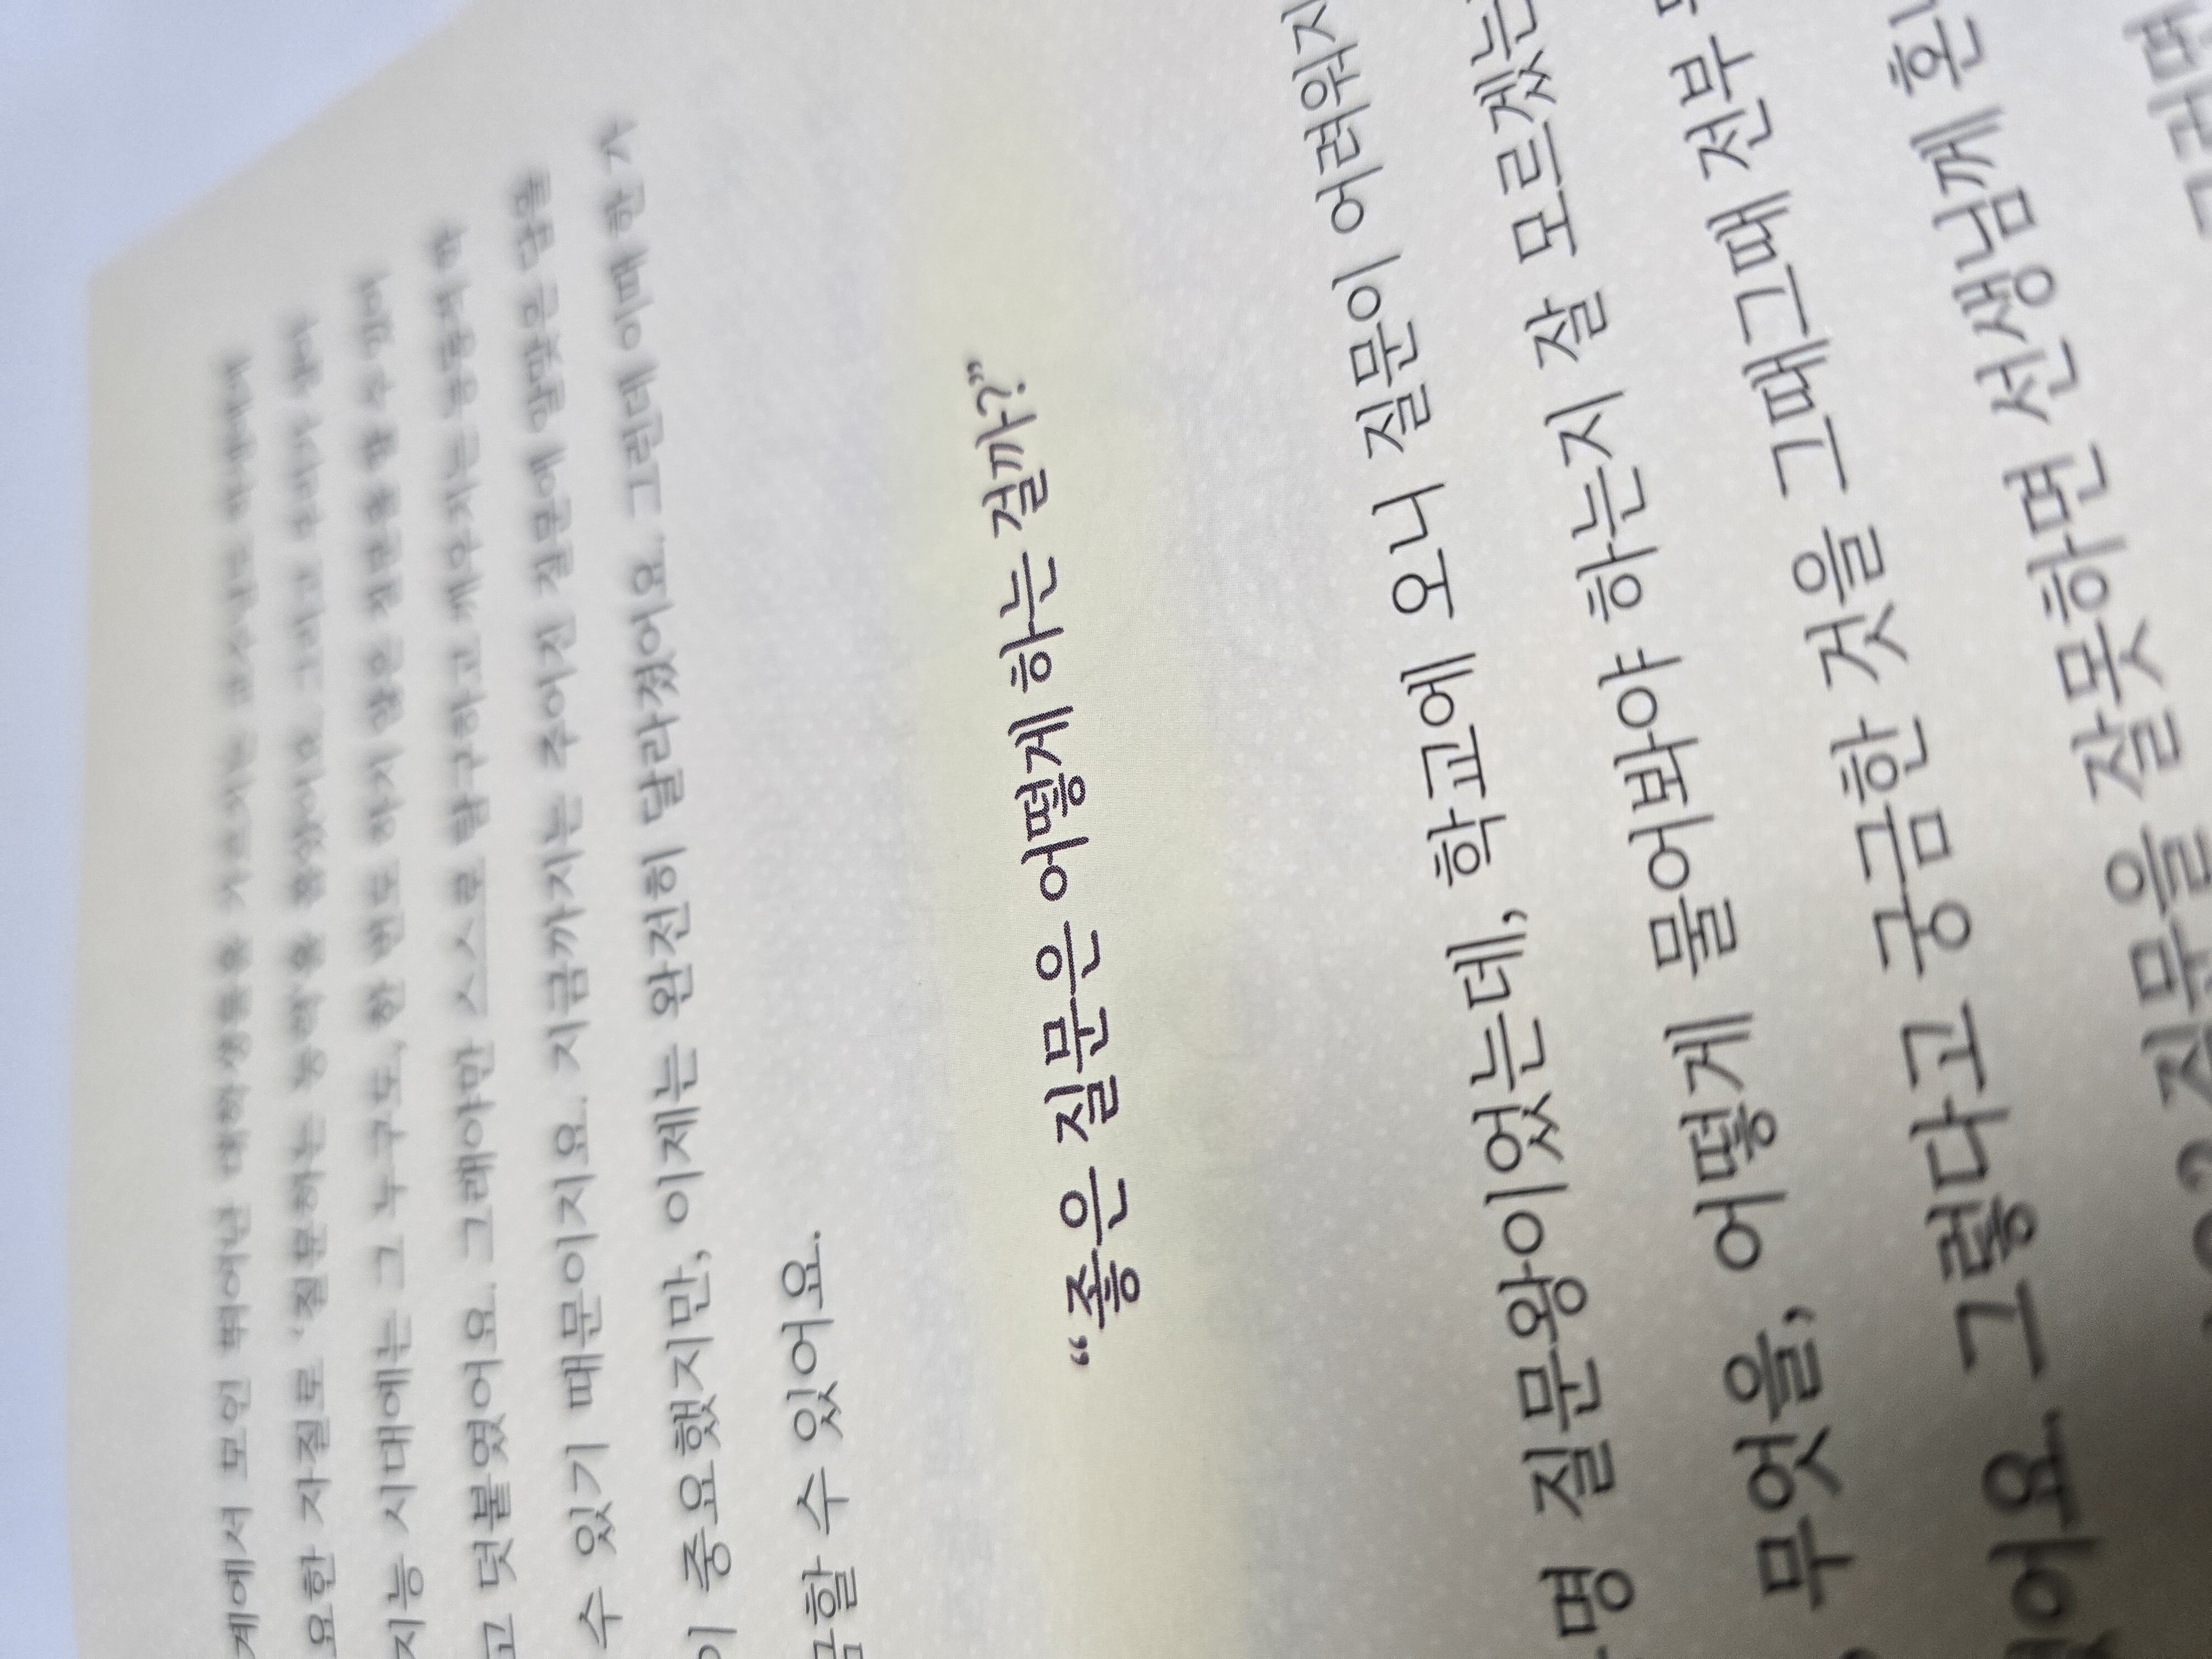 계에서 모인 뛰어난 대학생들을 가르치는
요한 자질로 '질문하는 능력'을 꼽았어요. 그리고
지능 시대에는 그 누구도, 한 번도 하지 않은 질문을 할 수 있어
고 덧붙였어요. 그래야만 스스로 탐구하고 깨우치는
수 있기 때문이지요. 지금까지는 주어진 질문에 알맞은 답을
이 중요했지만, 이제는 완전히 달라졌어요. 그런데 이때 한 가
금할 수 있어요.
“좋은 질문은 어떻게 하는 걸까?”
명 질문왕이었는데, 학교에 오니 질문이 어려워지
무엇을, 어떻게 물어봐야 하는지 잘 모르겠는
어요. 그렇다고 궁금한 것을 그때그때 전부
질문을 잘못하면 선생님께 혼
그러면